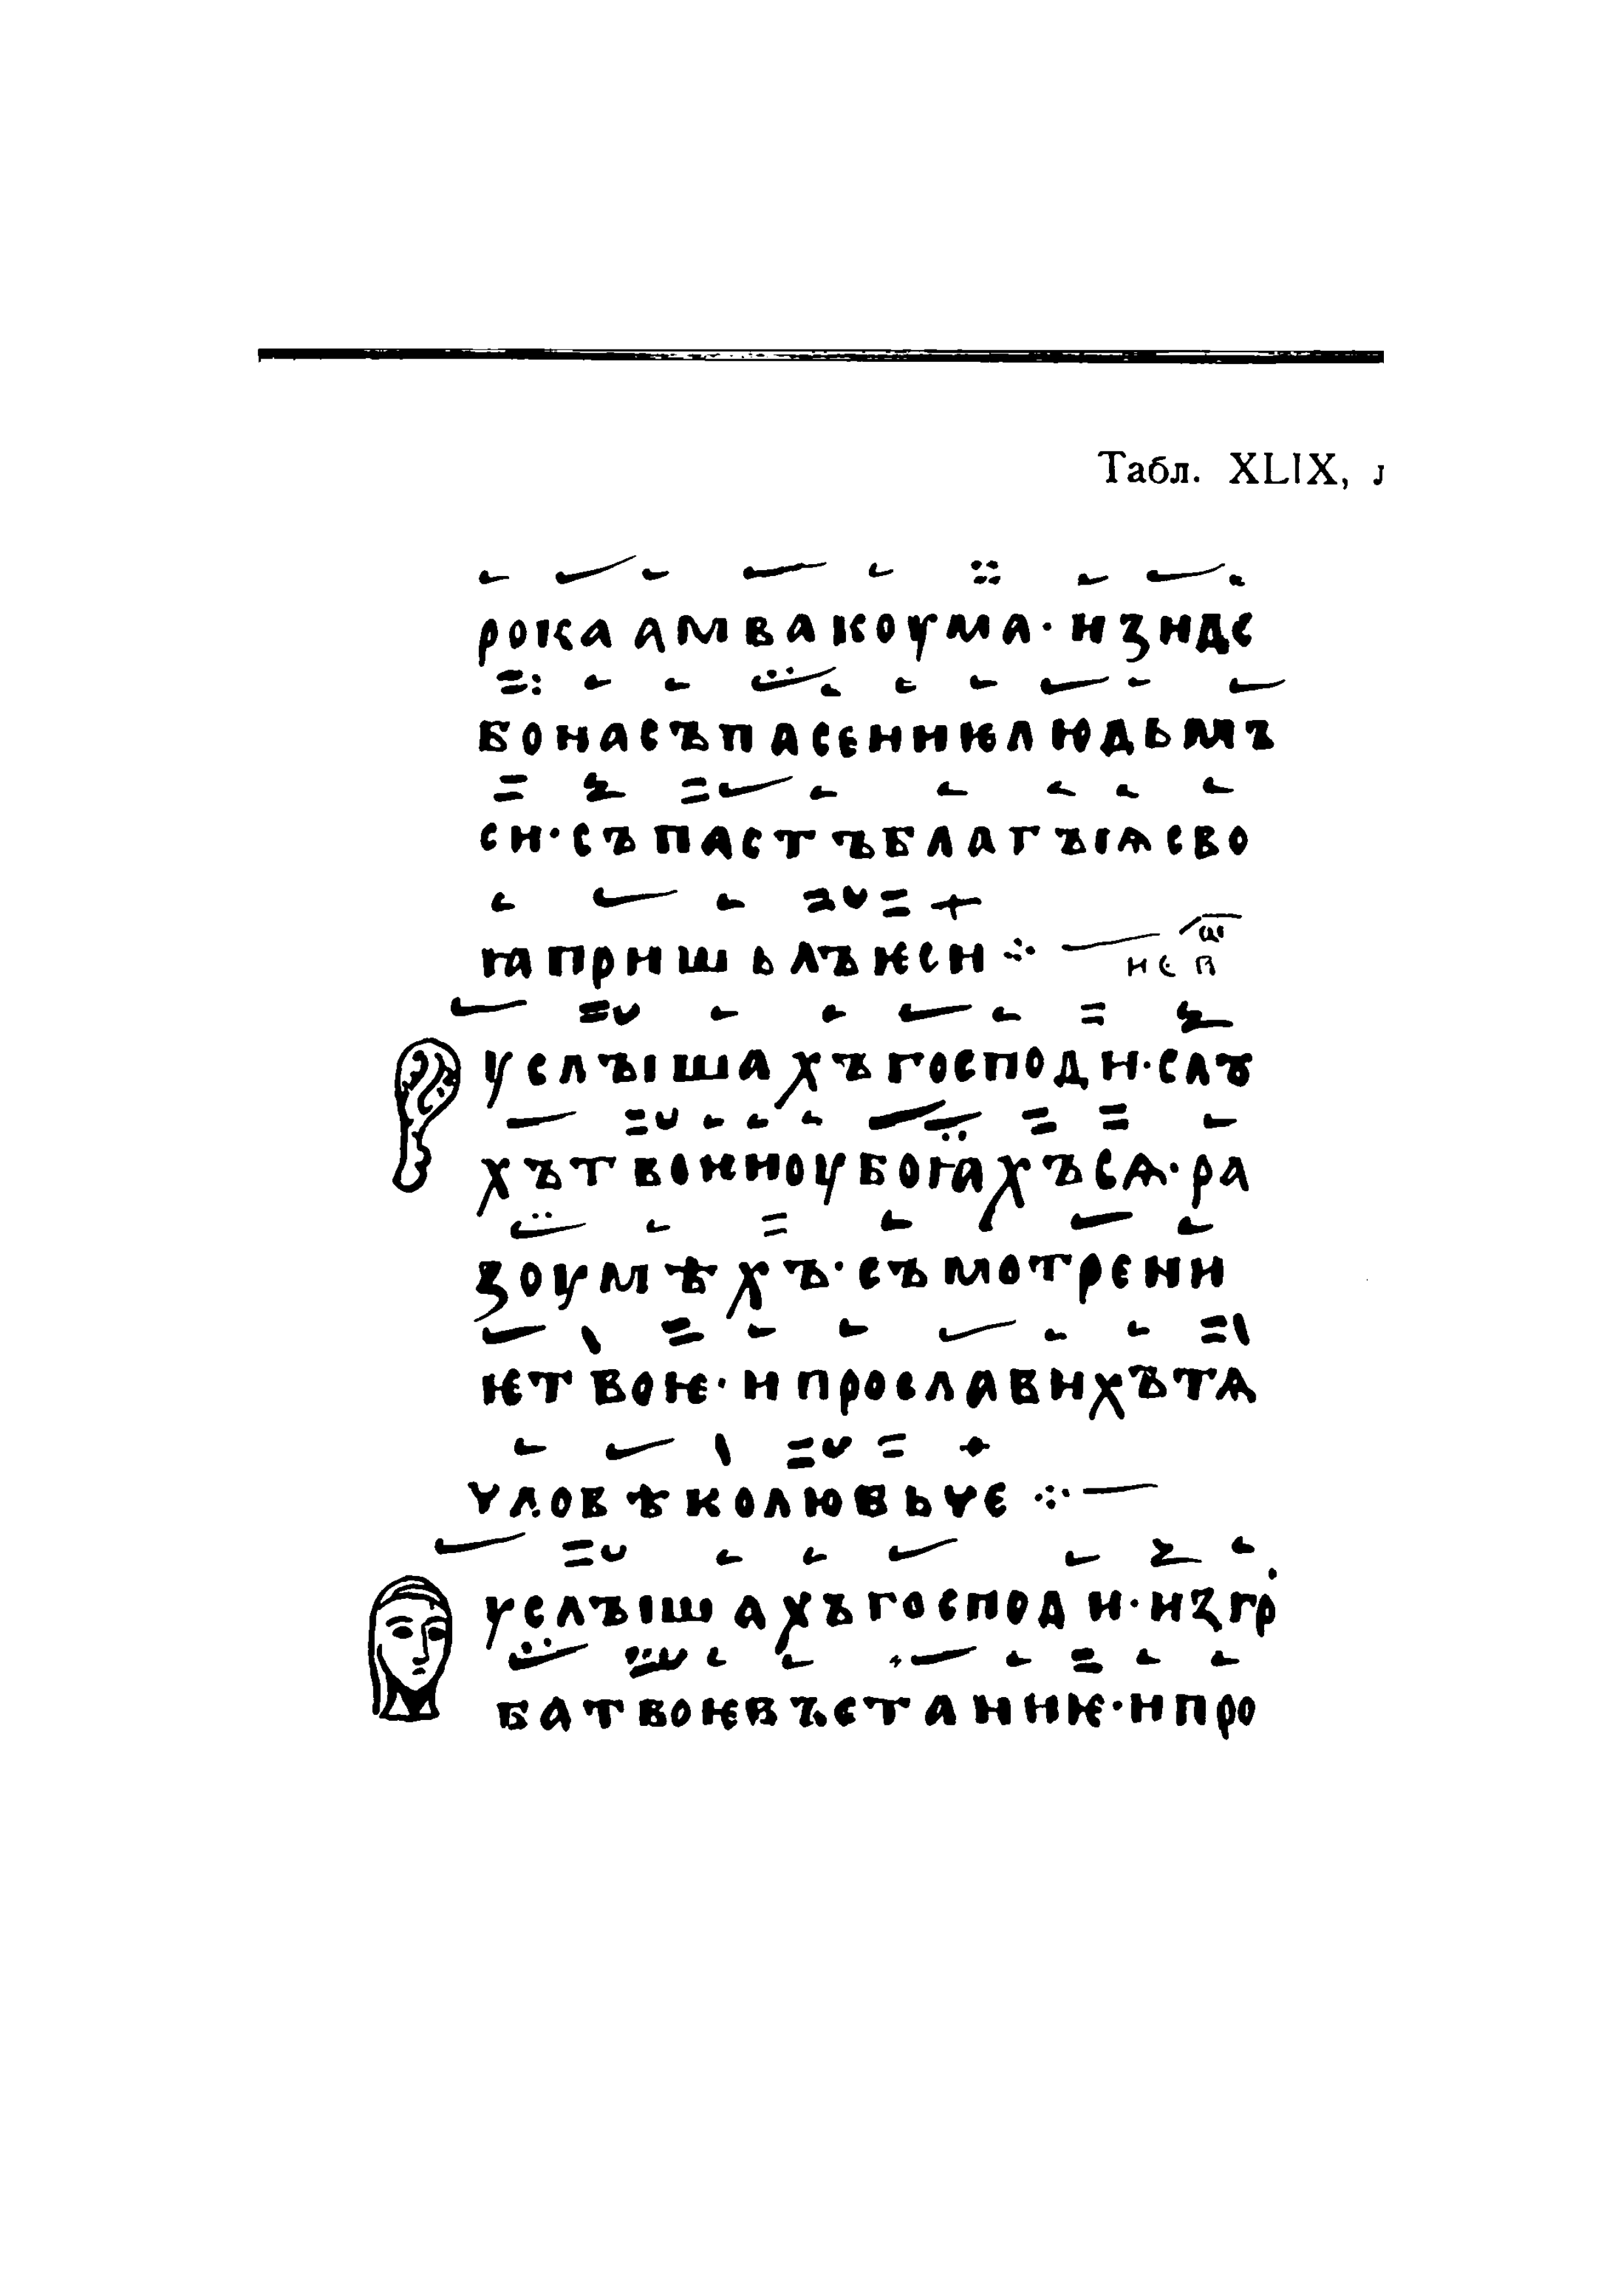 Табл. XLIX,
рока амвакоума · изиде
бо на съпасениꙗ людьмъ
си · съпастъ благꙑꙗ сво
ꙗ пришьлъ ѥси ⁘
не п ѿ
услꙑшахъ господи · слꙋ
хъ твои и оубоꙗхъ сѧ · ра
зоумѣхъ · съмотрени
ѥ твоѥ · и прославихъ тѧ
чловѣколюбьче ⁘
услꙑшахъ господи · из гр
ба твоѥ въстаниѥ · и про